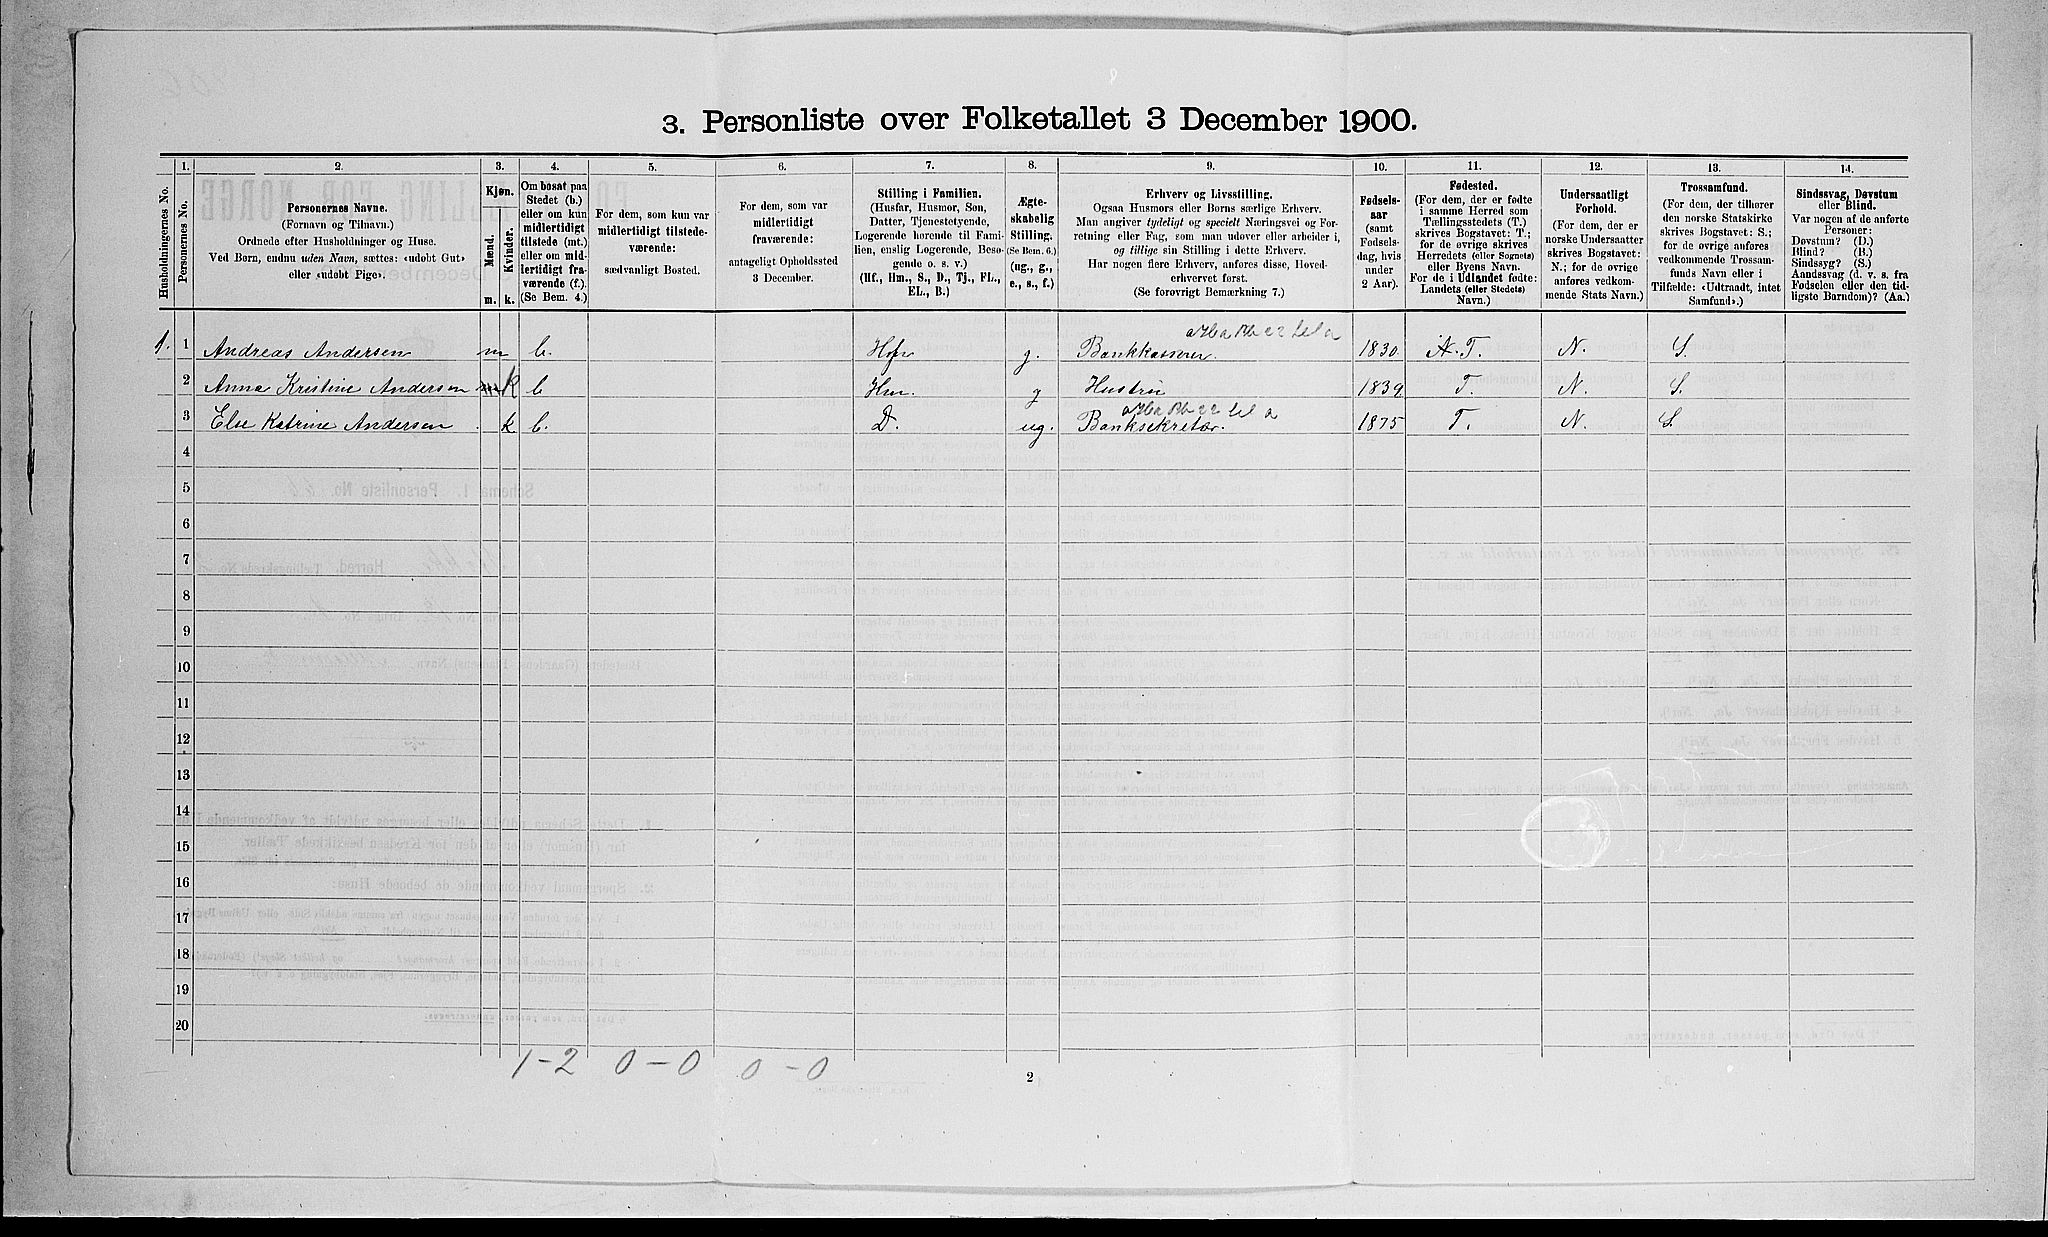 3. Personliste over Folketallet 3 December 1900.
1. 2. 3. 4. 5. 6. 7. 8. 9. 10. 11. 12. 13. 14.
Husholdningernes No.
Personernes No.
Personernes Navne.
(Fornavn og Tilnavn.)
Ordnede efter Husholdninger og Huse.
Ved Børn, endnu uden Navn, sættes: «udøbt Gut»
eller «udøbt Pige».
Kjøn.
Mænd.
Kvinder.
m. k.
Om bosat paa
Stedet (b.)
eller om kun
midlertidigt
tilstede (mt.)
eller om mid-
lertidigt fra-
værende (f.).
(Se Bem. 4.)
For dem, som kun var
midlertidigt tilstede-
værende:
sædvanligt Bosted.
For dem, som var
midlertidigt
fraværende:
antageligt Opholdssted
3 December.
Stilling i Familien.
(Husfar, Husmor, Søn,
Datter, Tjenestetyende,
Logerende hørende til Fami-
lien, enslig Logerende, Besø-
gende o. s. v.)
(Hf., Hm., S., D., Tj., FL.,
EL., B.)
Ægte-
skabelig
Stilling.
(Se Bem. 6.)
(ug., g.,
e., s., f.)
Erhverv og Livsstilling.
Ogsaa Husmors eller Børns særlige Erhverv.
Man angiver tydeligt og specielt Næringsvei og For-
retning eller Fag, som man udøver eller arbeider i,
og tillige sin Stilling i dette Erhverv.
Har nogen flere Erhverv, anføres disse, Hoved-
erhvervet først.
(Se forøvrigt Bemærkning 7.)
Fødsels-
aar
(samt
Fødsels-
dag, hvis
under
2 Aar).
Fødested.
(For dem, der er fødte
i samme Herred som
Tællingsstedets (T.)
skrives Bogstavet: T.;
for de øvrige skrives
Herredets (eller Sognets)
eller Byens Navn.
For de i Udlandet fødte:
Landets (eller Stedets)
Navn.)
Undersaatligt
Forhold.
(For dem, der er
norske Undersaatter
skrives Bogstavet:
N.; for de øvrige
anføres vedkom-
mende Stats Navn.)
Trossamfund.
(For dem, der tilhører
den norske Statskirke
skrives Bogstavet: S.;
for de øvrige anføres
vedkommende Trossam-
funds Navn eller i
Tilfælde: «Udtraadt, intet
Samfund».)
Sindssvag, Døvstum
eller Blind.
Var nogen af de anførte
Personer:
Døvstum? (D.)
Blind? (B.)
Sindssyg? (S.)
Aandssvag (d. v. s. fra
Fødselen eller den tid-
ligste Barndom)? (Aa.)
1. 1 Andreas Andersen m b. Hf. g. Bankkasserer. 1830. N. T. N. S.
2 Anna Kristine Andersen m k b Hm. g Hustru 1839 T. N. S.
3 Else Katrine Andersen k b. D. ug. Banksekretær. 1875 T. N. S.
4
5
6
7
8
9
10
11
12
13
14
15
16
17
18
19
20
1-2 0-0 0-0
2